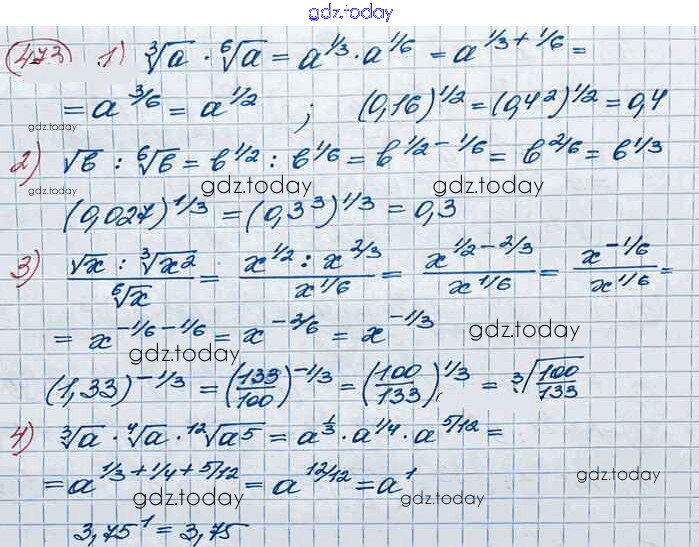 gdz.today
473 1) ∛a · ⁶√a = a^{1/3} · a^{1/6} = a^{1/3 + 1/6} =
= a^{3/6} = a^{1/2} ; (0,16)^{1/2} = (0,4²)^{1/2} = 0,4
gdz.today
2) √b : ⁶√b = b^{1/2} : b^{1/6} = b^{1/2 - 1/6} = b^{2/6} = b^{1/3}
gdz.today gdz.today gdz.today
(0,027)^{1/3} = (0,3³)^{1/3} = 0,3
3) (√x : ∛x²)/(⁶√x) = (x^{1/2} : x^{2/3})/(x^{1/6}) = (x^{1/2 - 2/3})/(x^{1/6}) = (x^{-1/6})/(x^{1/6}) =
= x^{-1/6 - 1/6} = x^{-2/6} = x^{-1/3}
gdz.today gdz.today
(1,33)^{-1/3} = (133/100)^{-1/3} = (100/133)^{1/3} = ∛(100/133)
4) ∛a · ⁴√a · ¹²√a⁵ = a^{1/3} · a^{1/4} · a^{5/12} =
= a^{1/3 + 1/4 + 5/12} = a^{12/12} = a¹
gdz.today gdz.today
3,75¹ = 3,75